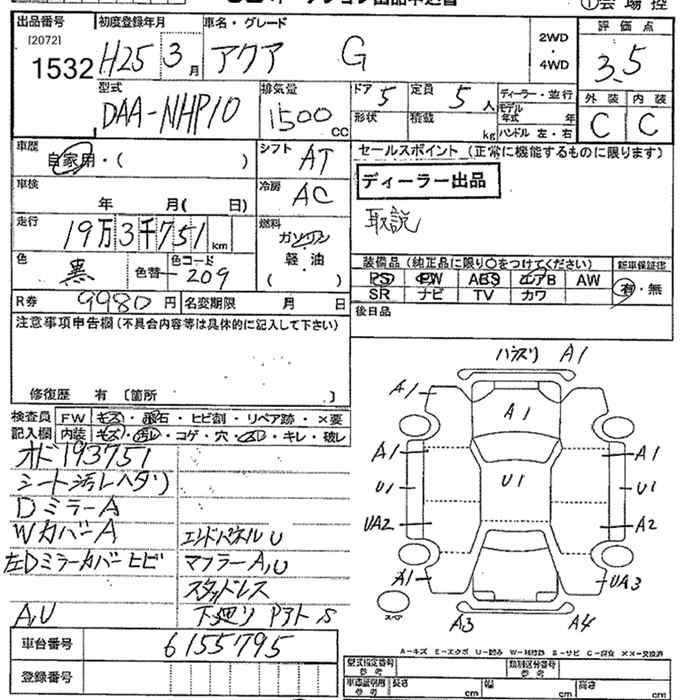 ①会場控
出品番号 初度登録年月 車名・グレード 評価点
[2072]
1532 H25年3月 アクア G 2WD・4WD 3.5
型式 排気量 ドア 定員 ディーラー・並行 外装 内装
DAA-NHP10 1500cc 5 5人 モデル年式 年 C C
形状 積載 kg ハンドル 左・右
車歴 自家用・( ) シフト AT セールスポイント (正常に機能するものに限ります)
ディーラー出品
車検 年 月( 日) 冷房 AC
取説
走行 19万3千751km 燃料 ガソリン
軽・油
( )
色 黒 色替 色コード 209
装備品 (純正品に限り○をつけてください) 新車保証書
PS PW ABS エアB AW 有・無
SR ナビ TV カワ
R券 9980円 名変期限 月 日
後日品
注意事項申告欄(不具合内容等は具体的に記入して下さい)
修復歴 有 〔箇所 〕
検査員 FW キズ・飛石・ヒビ割・リペア跡・×要
記入欄 内装 キズ・汚レ・コゲ・穴・スレ・キレ・破レ
オド193751
シート汚レヘタリ
DミラーA
WカバーA エンドパネルU
左Dミラーカバーヒビ マフラーA,U
スタッドレス
A,U 下廻り P外 S
車台番号 6155795
登録番号
ハラズリ A1
A1
A1
A1 A1
U1 U1 U1
UA2 A2
A1 UA3
スペア
A3 A4
A-キズ E-エクボ U-凹み W-補修跡 S-サビ C-腐食 ××-交換済
型式指定番号 参考 類別区分番号 参考
車歴証明用 参考 長さ cm 幅 cm 高さ cm